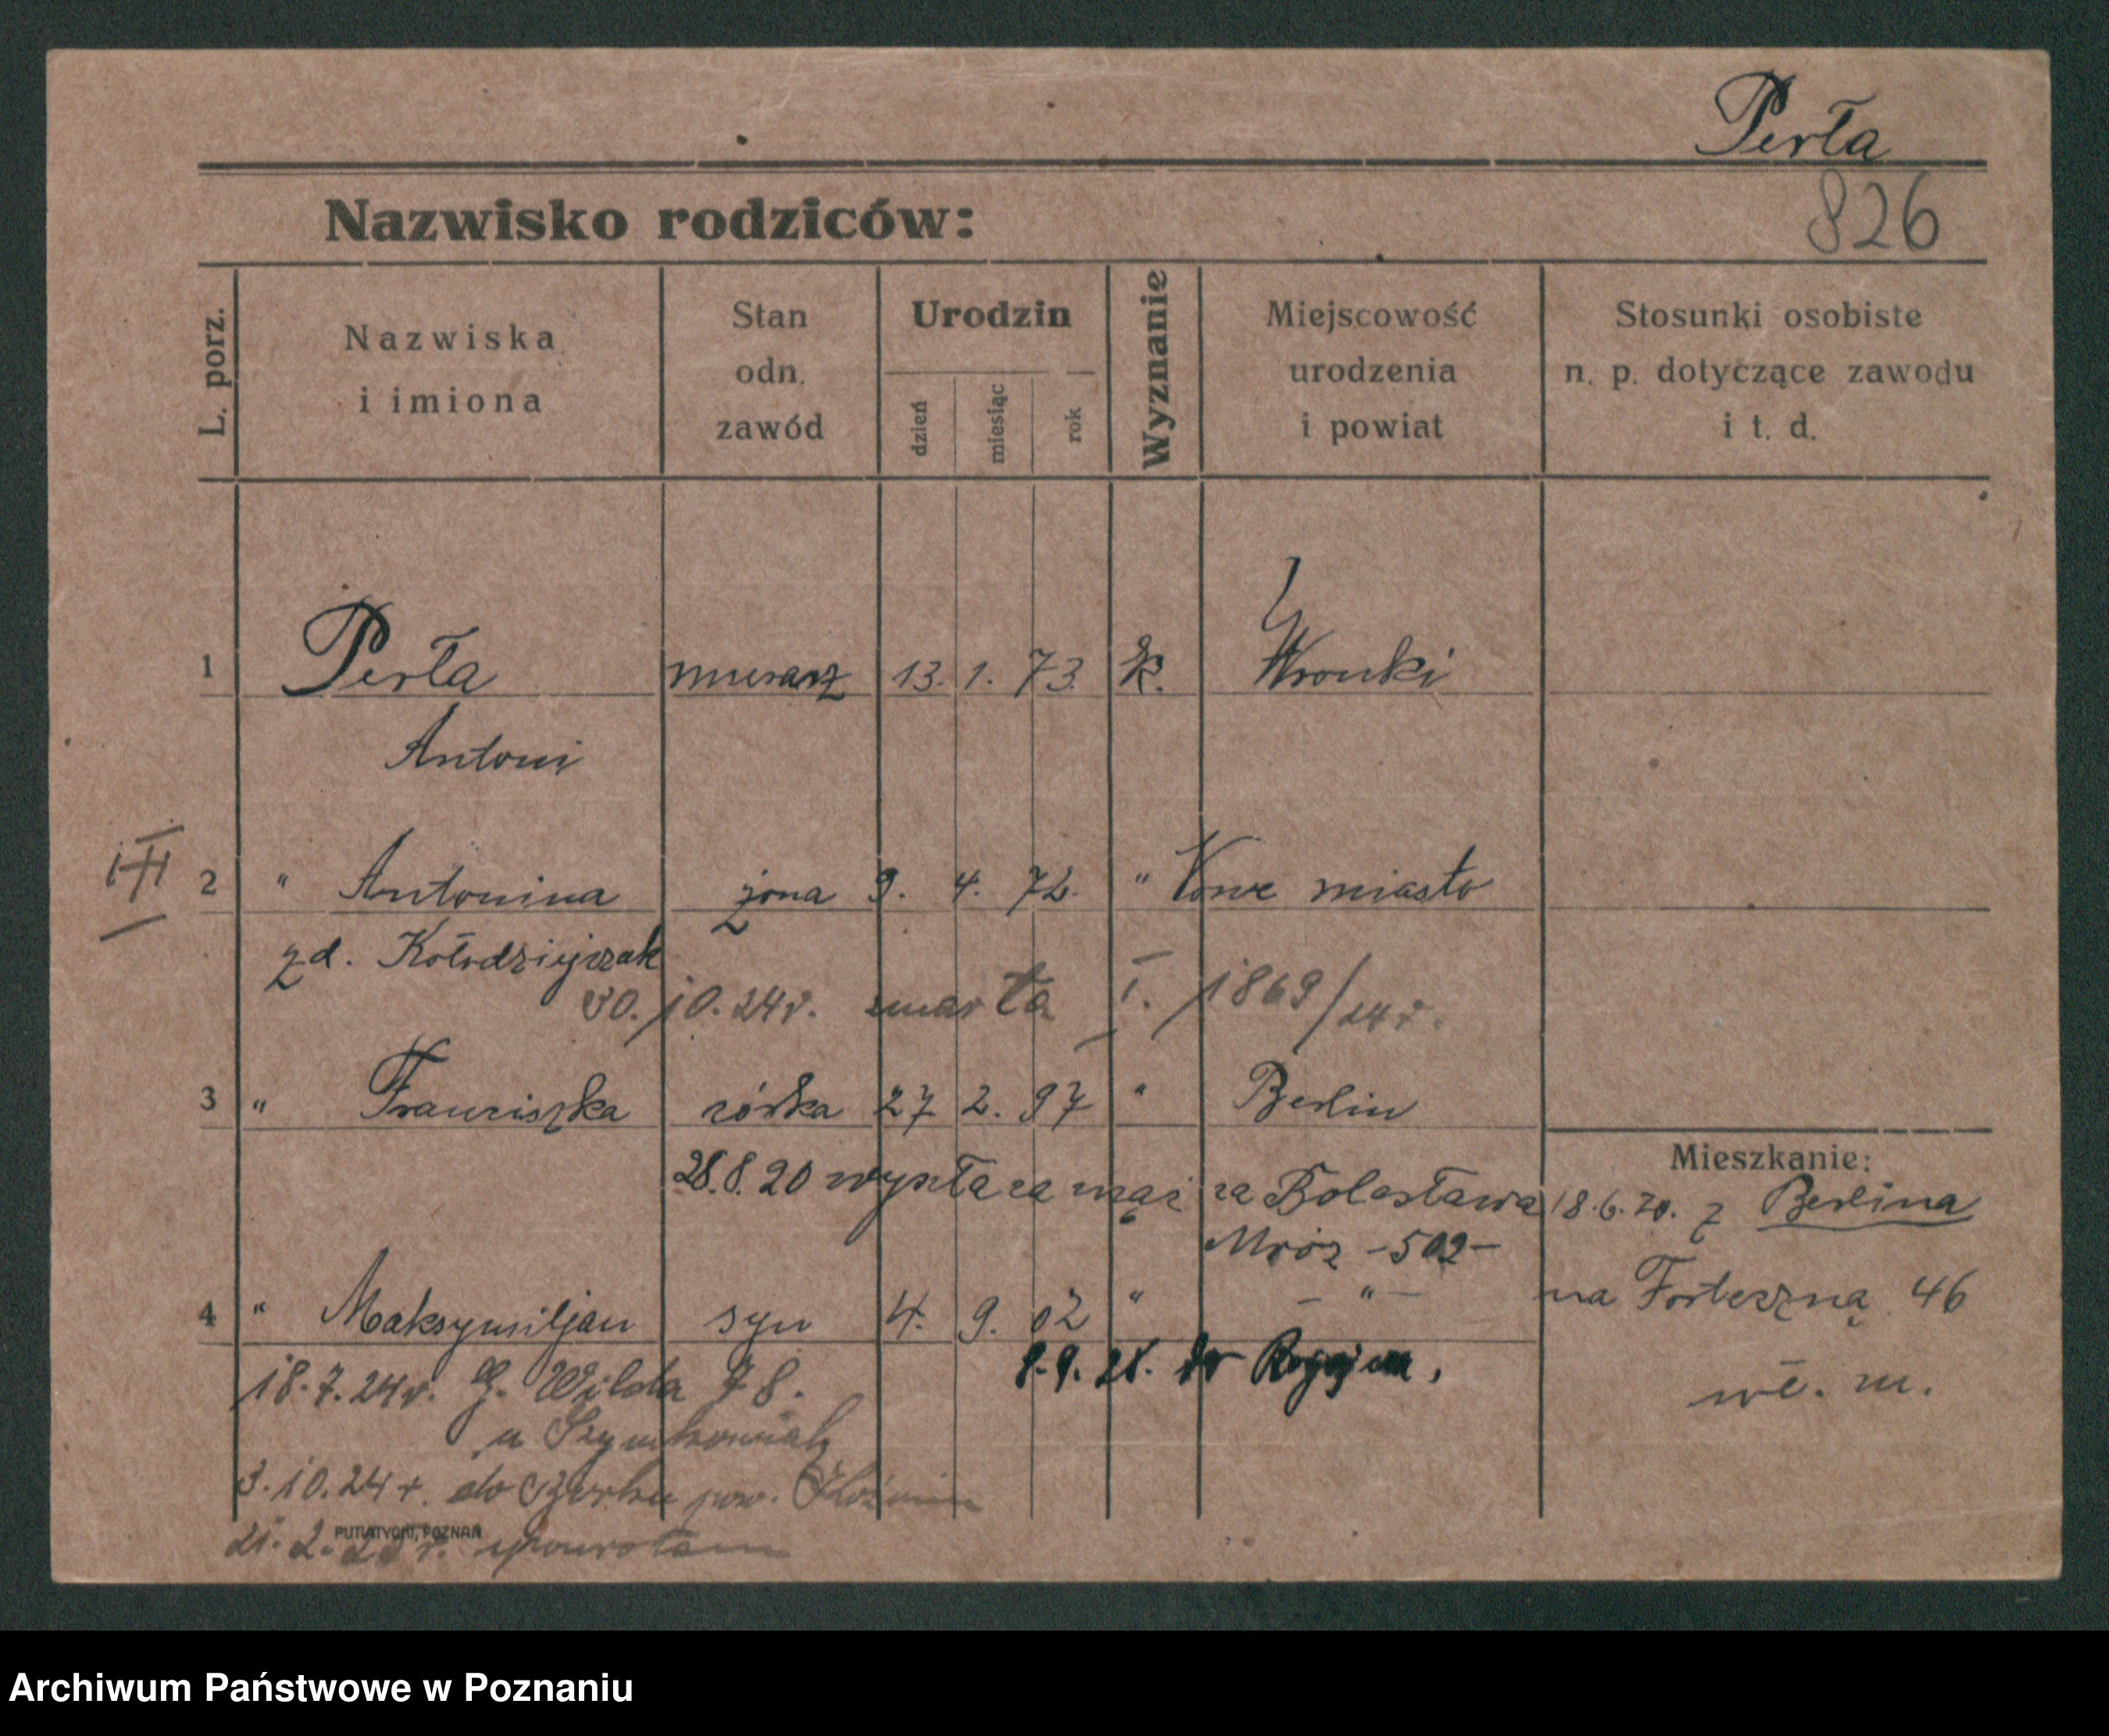 Perła
826
Nazwisko rodziców:
L. porz.
Nazwiska
i imiona
Stan
odn.
zawód
Urodzin
dzień
miesiąc
rok
Wyznanie
Miejscowość
urodzenia
i powiat
Stosunki osobiste
n. p. dotyczące zawodu
i t. d.
1 Perła murarz 13. 1. 73. k. Wronki
Antoni
2 " Antonina żona 9. 4. 72. " Nowe miasto
zd. Kołodziejczak
30.10.24r. zmarła I. 1869/24r.
3 " Franciszka córka 27 2. 97 " Berlin
28.8.20 wyszła za mąż za Bolesława
Mróz -502-
4 " Maksymiljan syn 4. 9. 02 " - " -
Mieszkanie:
18.6.20. z Berlina
na Forteczną 46
w m.
18.7.24r. G. Wilda 78.
u Szymkowiak
3.10.24r. do pow.
21.2. r.
PUTIATYCKI, POZNAŃ
Archiwum Państwowe w Poznaniu